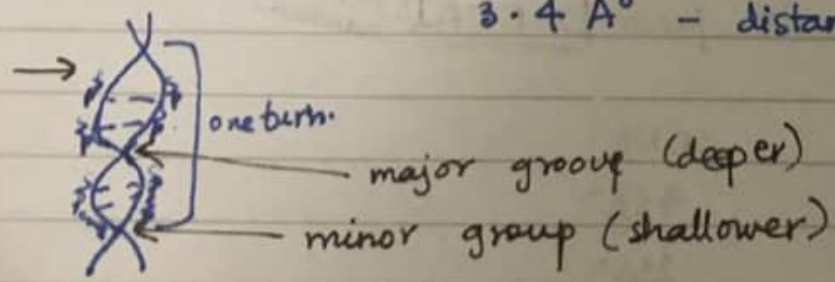 3.4 A° - distan
one turn.
major groove (deeper)
minor group (shallower)